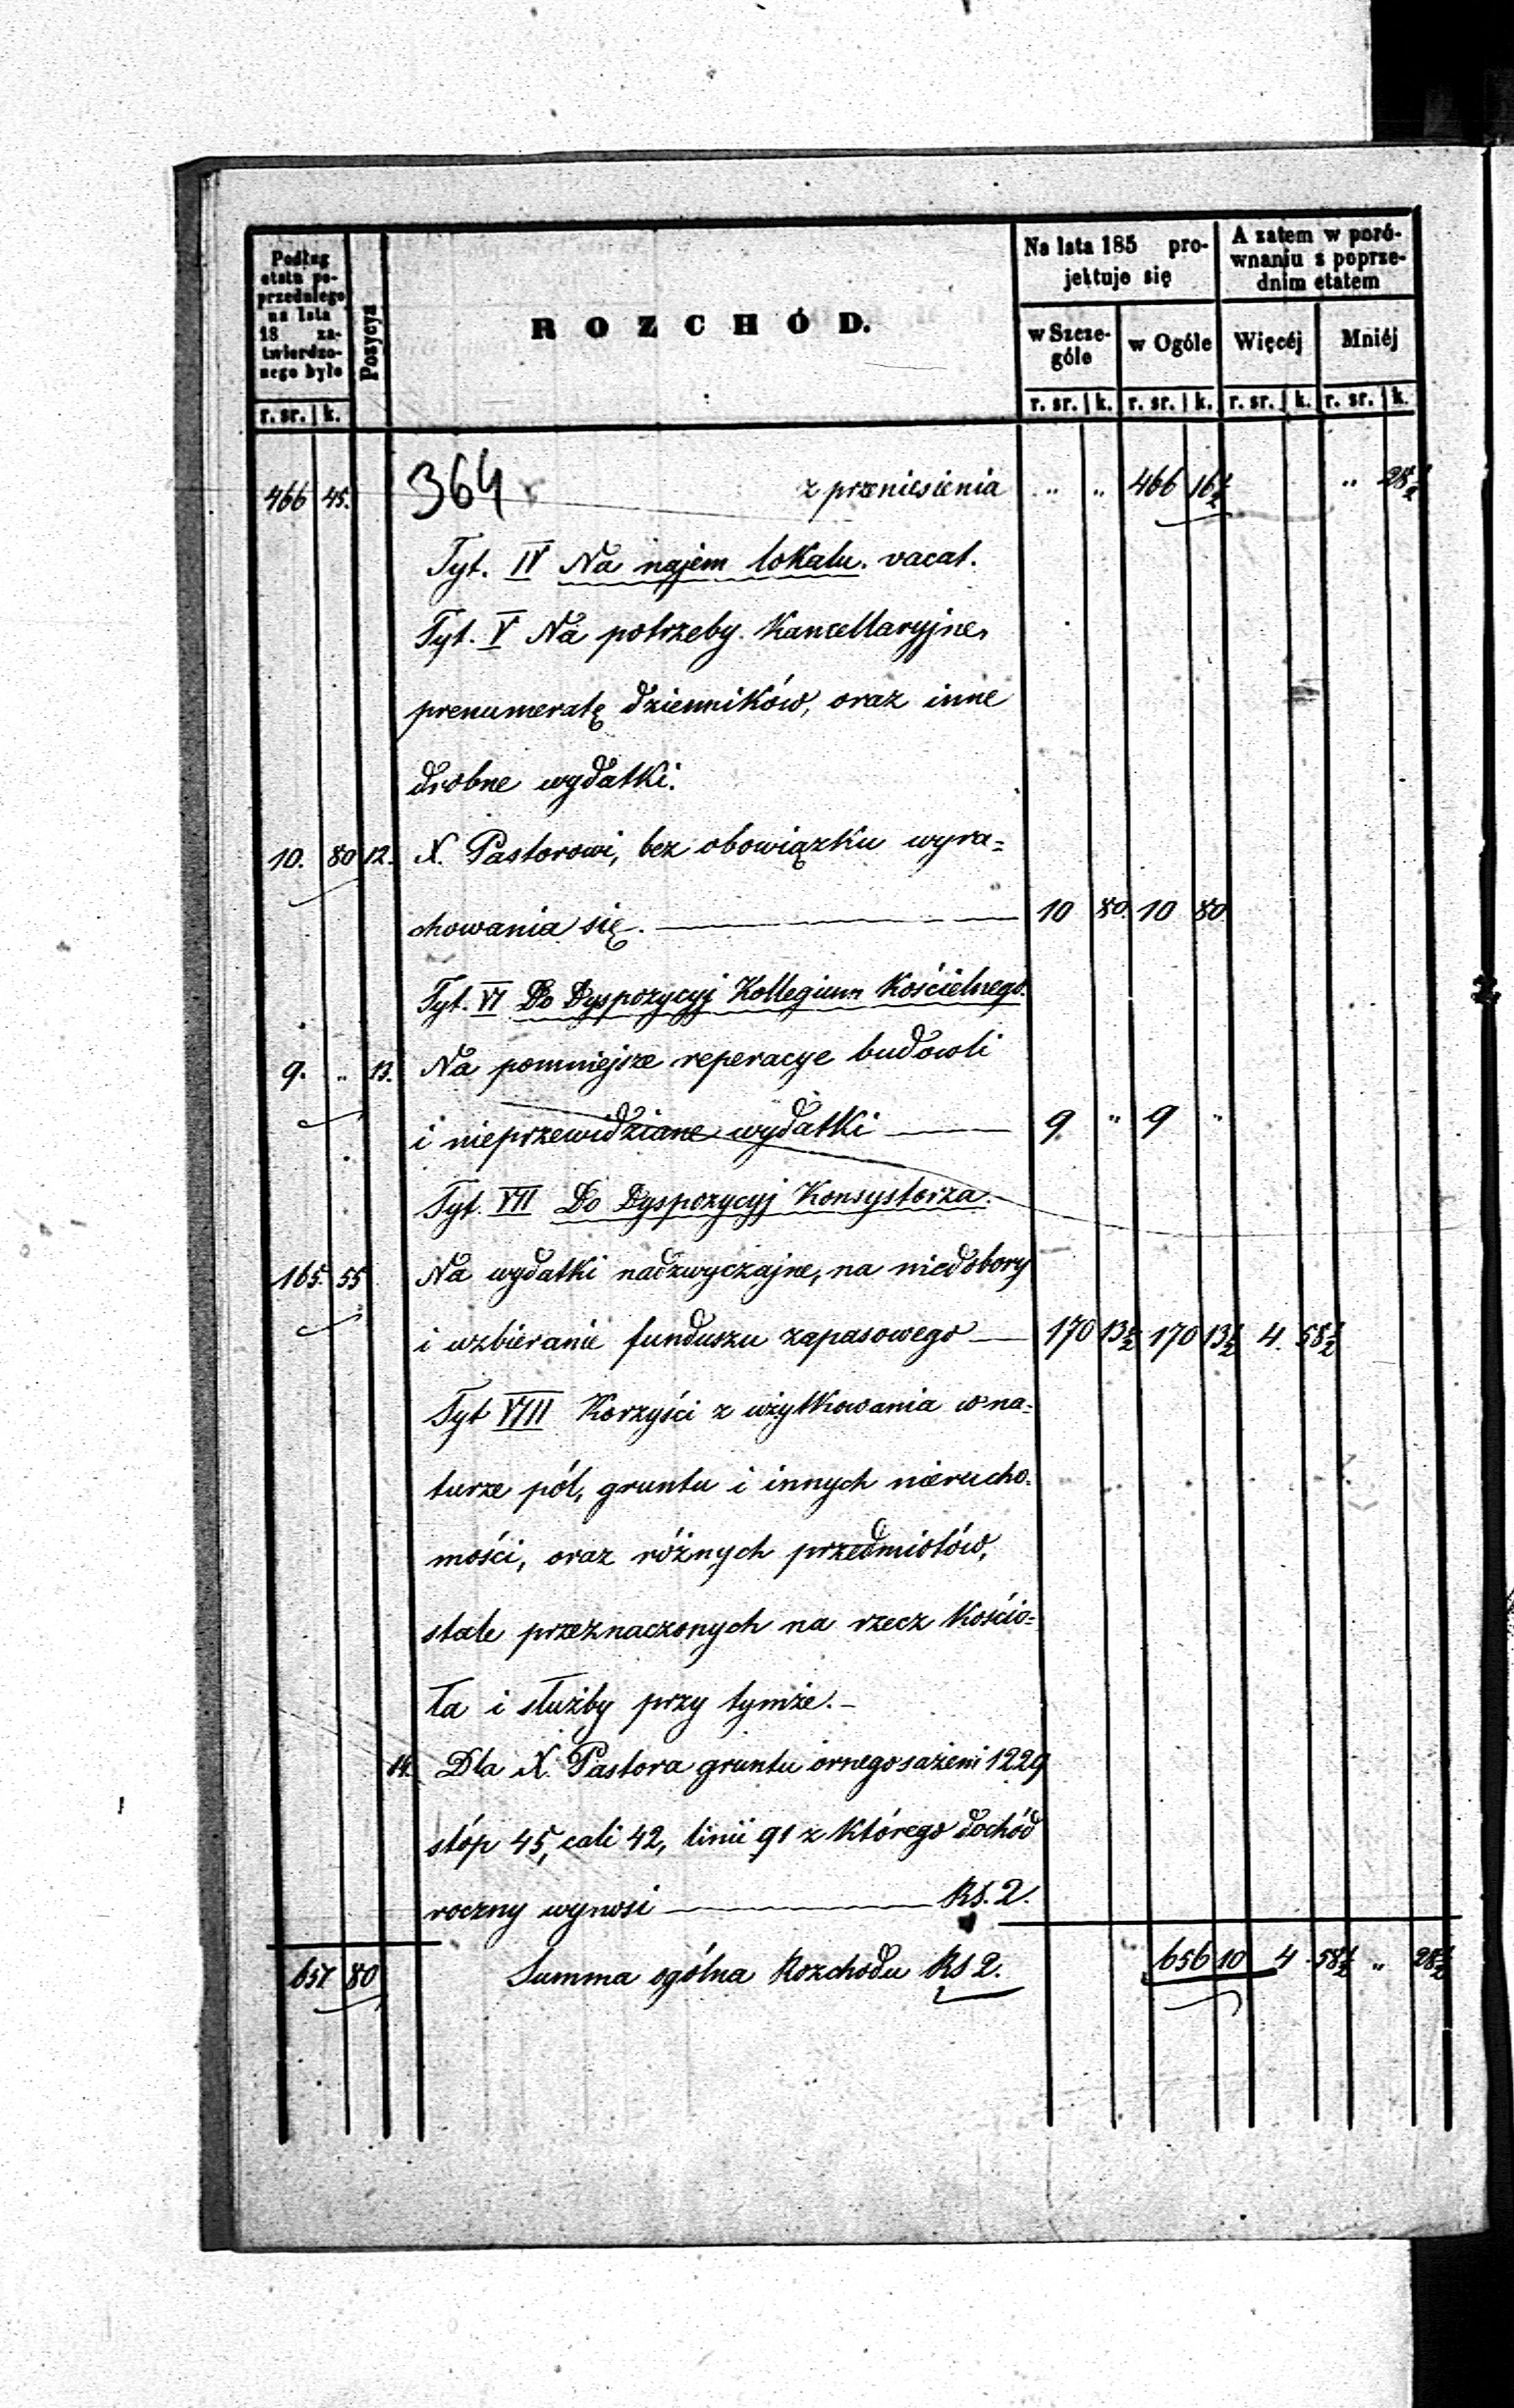 Podług etatu poprzedniego na lata 18 zatwierdzonego było
Posycya
ROZCHÓD.
Na lata 185 projektuje się
A zatem w porównaniu z poprzednim etatem
w Szczególe
w Ogóle
Więcéj
Mniéj
r. sr. k. r. sr. k. r. sr. k. r. sr. k. r. sr. k.
466 45. 364 z przeniesienia " " 466 16½ " 28½
Tyt. IV Na najem lokalu. vacat.
Tyt. V Na potrzeby Kancellaryjne,
prenumeratę dzienników, oraz inne
drobne wydatki.
10. 80 12. X. Pastorowi, bez obowiązku wyra=
chowania się. 10 80. 10 80
Tyt. VI Do Dyspozycyj Kollegium Kościelnego.
9. " 13. Na pomniejsze reperacye budowli
i nieprzewidziane wydatki 9 " 9 "
Tyt. VII Do Dyspozycyj Konsystorza.
165. 55 Na wydatki nadzwyczajne, na niedobory
i uzbieranie funduszu zapasowego 170 13½ 170 13½ 4. 58½
Tyt VIII Korzyści z użytkowania w na=
turze pól, gruntu i innych nierucho=
mości, oraz różnych przedmiotów,
stale przeznaczonych na rzecz Kościo=
ła i służby przy tymże.-
14. Dla X. Pastora gruntu ornego sażeni 1229
stóp 45, cali 42, linii 91 z którego dochód
roczny wynosi Rs. 2.
651 80 Summa ogólna Rozchodu Rs 2. 656 10 4 58½ " 28½